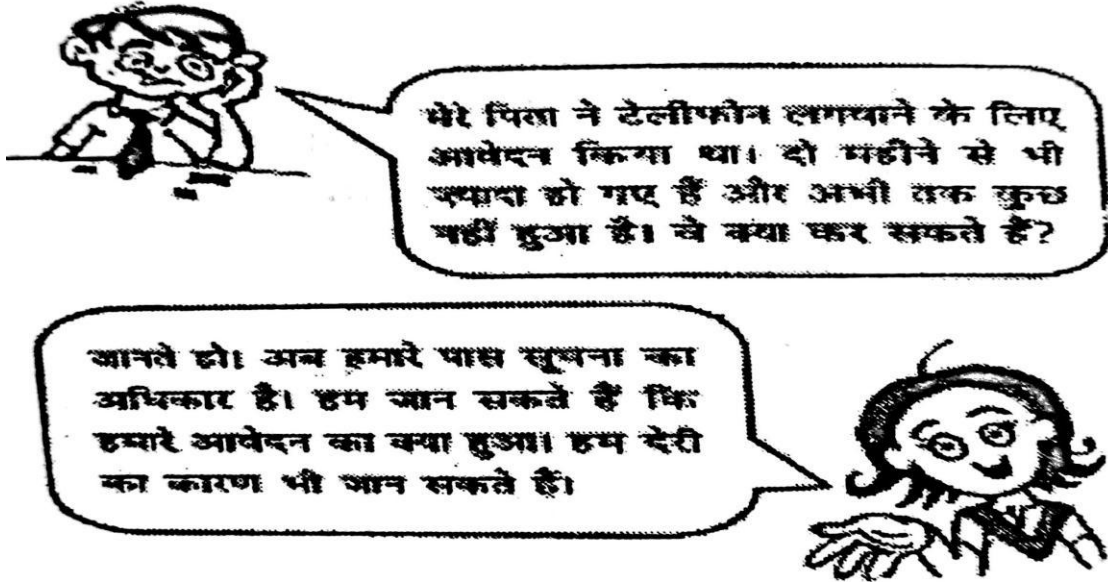 मेरे पिता ने टेलीफोन लगवाने के लिए
आवेदन किया था। दो महीने से भी
ज्यादा हो गए हैं और अभी तक कुछ
नहीं हुआ है। वे क्या कर सकते हैं?
जानते हो। अब हमारे पास सूचना का
अधिकार है। हम जान सकते हैं कि
हमारे आवेदन का क्या हुआ। हम देरी
का कारण भी जान सकते हैं।